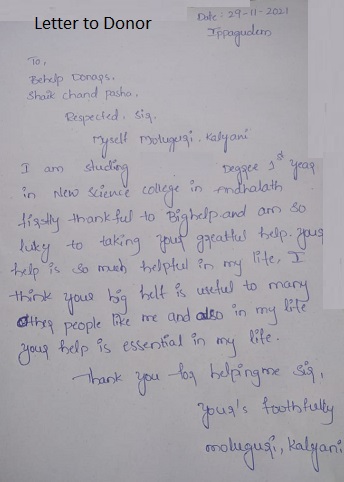 Letter to Donor
Date: 29-11-2021
Ippagudem
To,
Behelp Donars,
Shaik chand pasha,
Respected, Sir,
Myself Moluguri, Kalyani
I am studing Degree 1st year
in New Science college in
firstly thankful to Bighelp and am so
luky to taking your greatful help. Your
help is so much helpful in my life, I
think your big helf is useful to many
other people like me and also in my life
your help is essential in my life.
Thank you for helping me sir,
Your's foothfully
Moluguri, Kalyani